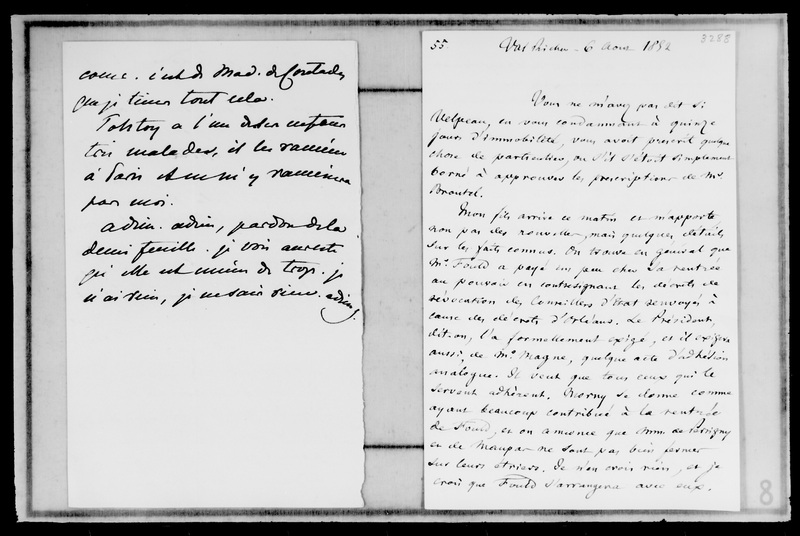 comme. c'est de Mad. de Contades
que je tiens tout cela.
Tolstoy a l'un de ses enfans
très malades, il les ramène
à Paris et on m'y ramènera
pas moi.
adieu. adieu, pardon de la
demi feuille. je vois au reste
qu'elle est même de trop. je
n'ai rien, je ne sais rien. adieu.
55 Val Richer - 6 Août 1852 3285
Vous ne m'avez pas dit si
Velpeau, en vous condamnant à quinze
jours d'immobilité, vous avoit prescrit quelque
chose de particulier, ou s'il s'étoit simplement
borné à approuver les prescriptions de Mr.
Mon fils arrive ce matin et m'apporte,
non pas des nouvelles, mais quelques détails
sur les faits connus. On trouve en général que
Mr. Fould a payé un peu cher sa rentrée
au pouvoir en contresignant les décrets de
révocation des Conseillers d'Etat renvoyés à
cause des décrets d'Orléans. Le Président,
dit-on, l'a formellement exigé, et il exigera
aussi, de Mr. Magne, quelque acte d'adhésion
analogue. Il veut que tous ceux qui le
servent adhèrent. Morny se donne comme
ayant beaucoup contribué à la rentrée
de Fould, et on annonce que Mm. de Persigny
et de Maupas ne sont pas bien fermes
sur leurs étriers. Je n'en crois rien, et je
crois que Fould s'arrangera avec eux.
8